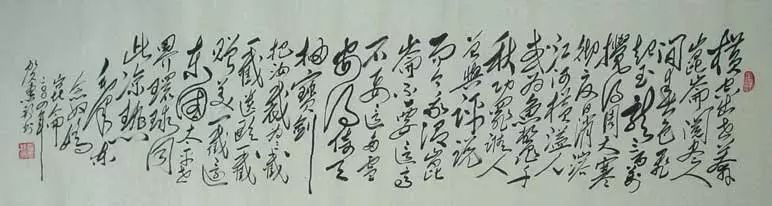 横空出世莽
崑崙阅尽人
间春色飞
起玉龙三百万
搅得周天寒
彻夏日消溶
江河横溢人
或为鱼鳖千
秋功罪谁人
曾与评说
而今我谓崑
崙不要这高
不要这多雪
安得倚天
抽宝剑
把汝裁为三截
一截遗欧一截
赠美一截还
东國太平世
界环球同
此凉热
毛泽东
念奴娇
崑仑